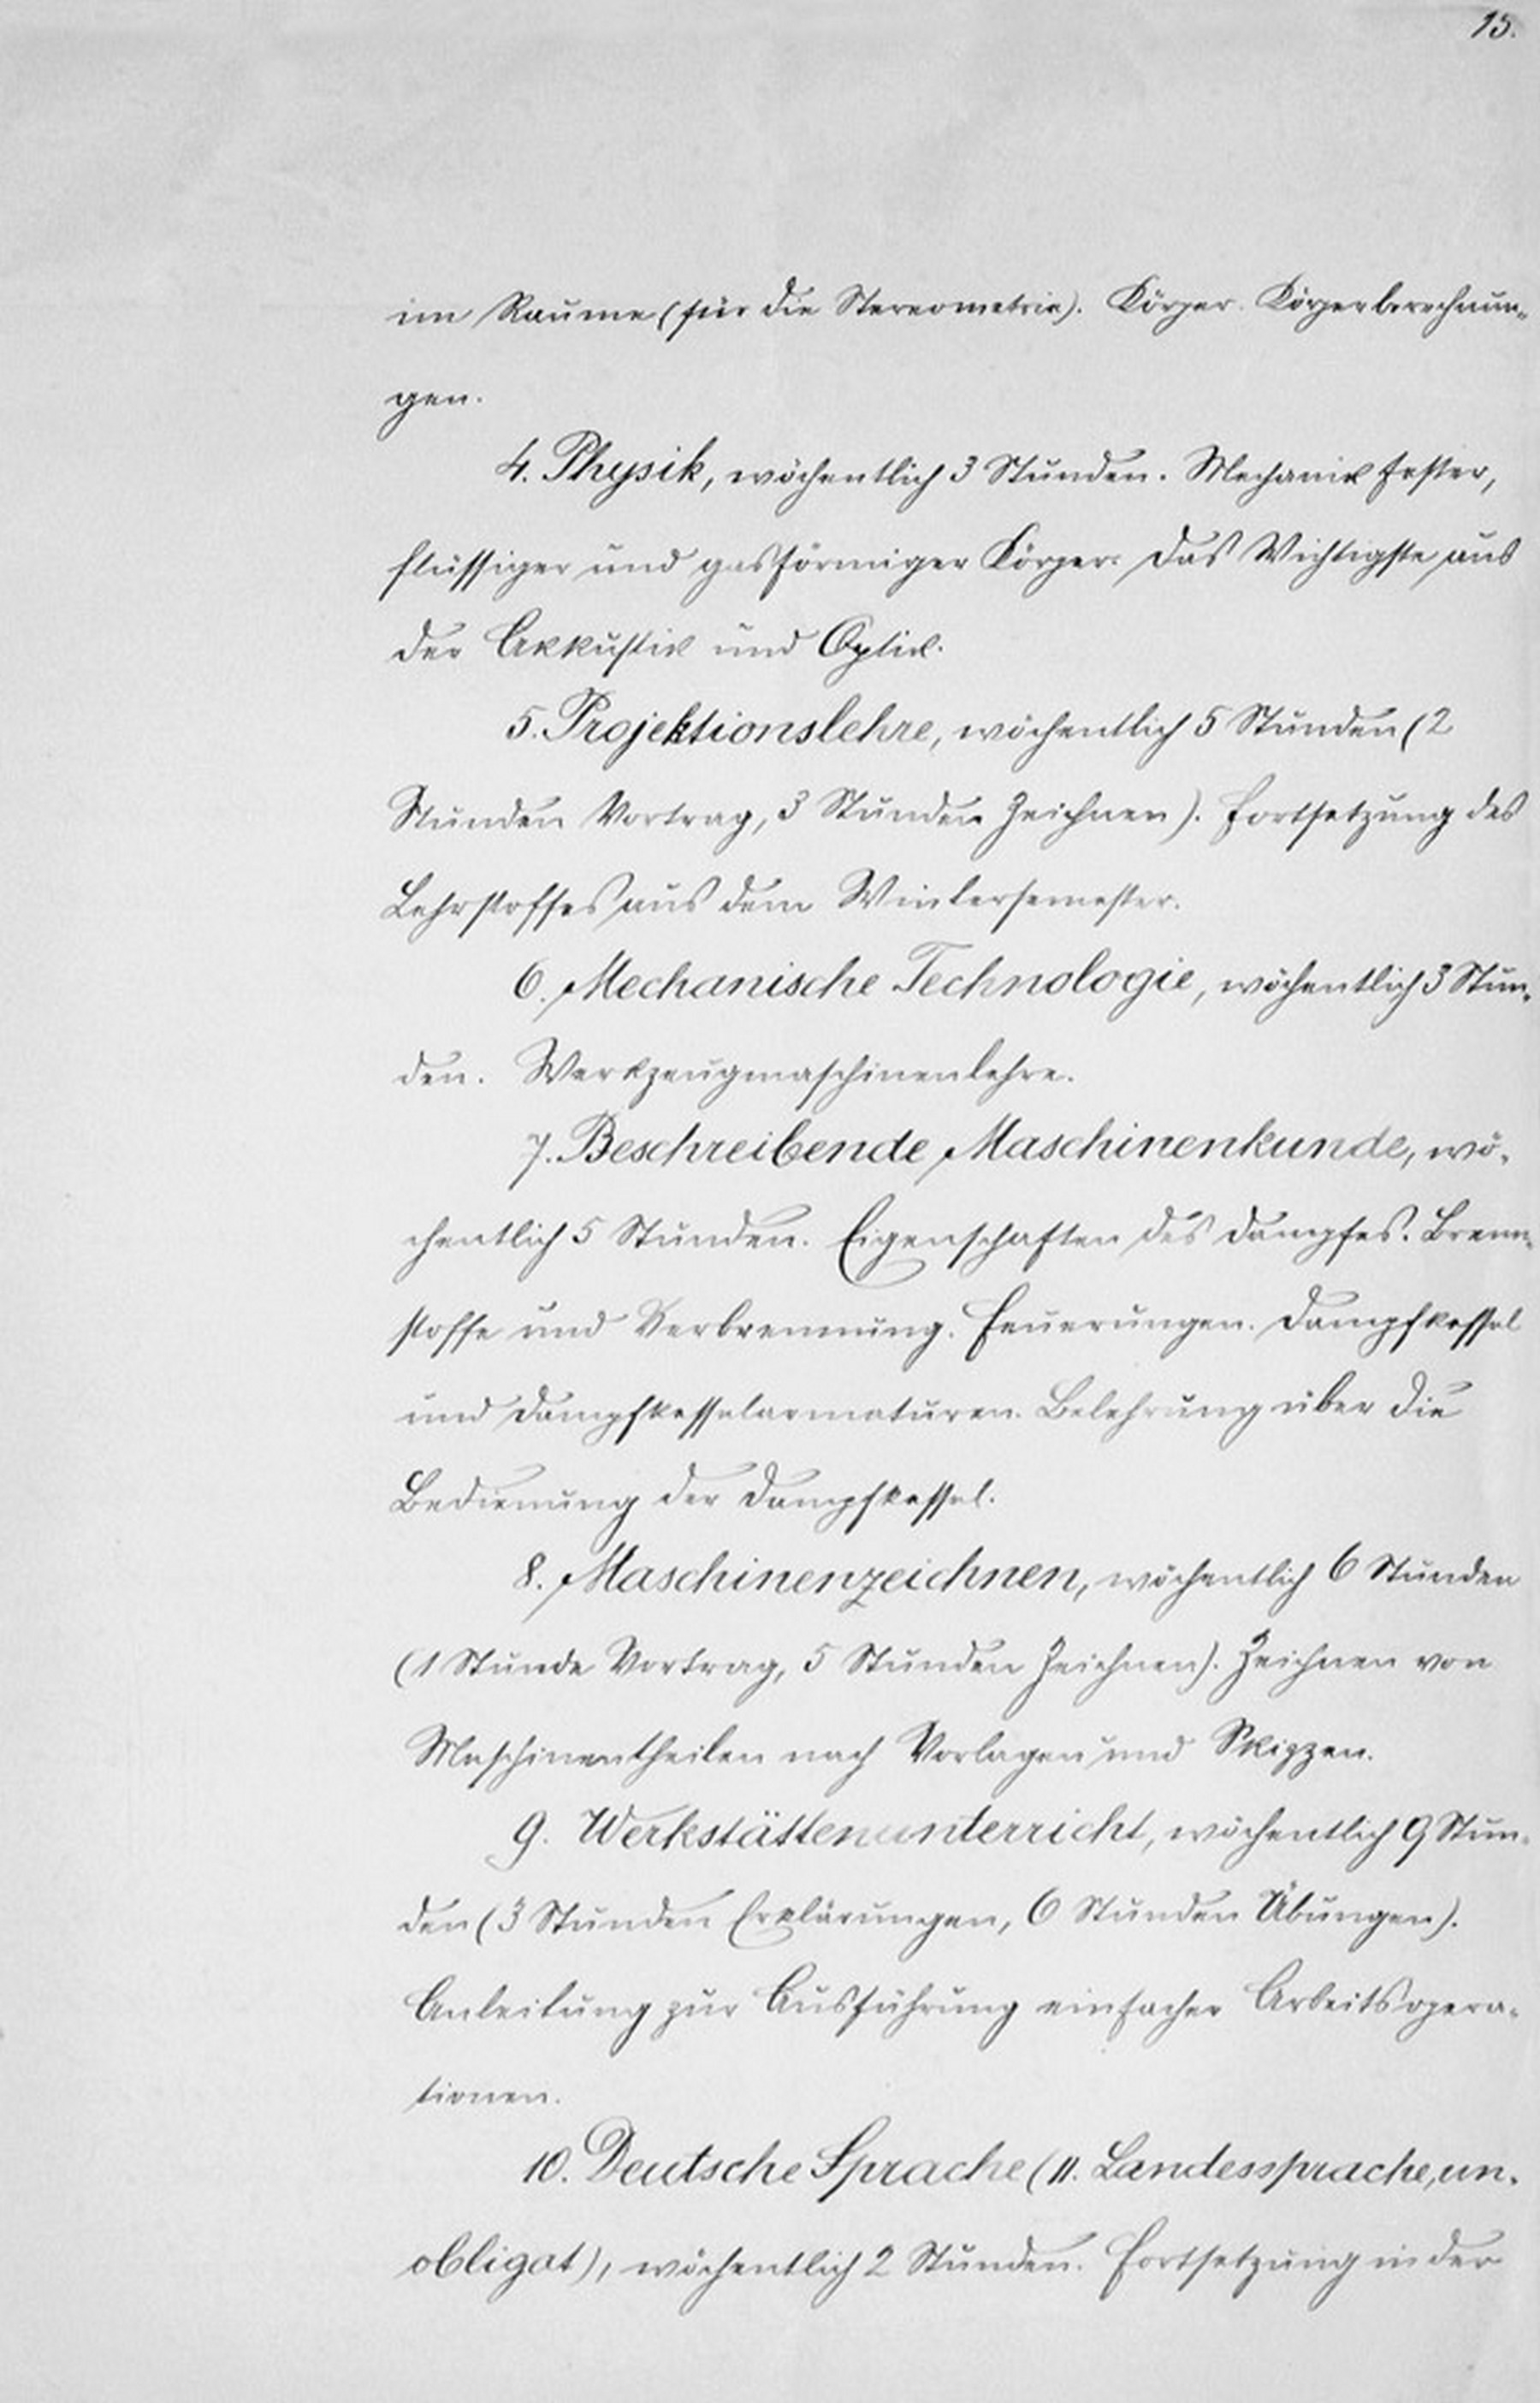 15.
im Raume (für die Stereometrie). Körper. Körperberechnun-
gen.
4. Physik, wöchentlich 3 Stunden. Mechanik fester,
flüssiger und gasförmiger Körper. Das Wichtigste aus
der Akkustik und Optik.
5. Projektionslehre, wöchentlich 5 Stunden (2
Stunden Vortrag, 3 Stunden Zeichnen). Fortsetzung des
Lehrstoffes aus dem Wintersemester.
6. Mechanische Technologie, wöchentlich 3 Stun-
den. Werkzeugmaschinenlehre.
7. Beschreibende Maschinenkunde, wö-
chentlich 5 Stunden. Eigenschaften des Dampfes. Brenn-
stoffe und Verbrennung. Feuerungen. Dampfkessel
und Dampfkesselarmaturen. Belehrung über die
Bedienung der Dampfkessel.
8. Maschinenzeichnen, wöchentlich 6 Stunden
(1 Stunde Vortrag, 5 Stunden Zeichnen). Zeichnen von
Maschinentheilen nach Vorlagen und Skizzen.
9. Werkstättenunterricht, wöchentlich 9 Stun-
den (3 Stunden Erklärungen, 6 Stunden Übungen).
Anleitung zur Ausführung einfacher Arbeitsopera-
tionen.
10. Deutsche Sprache (II. Landessprache, un-
obligat), wöchentlich 2 Stunden. Fortsetzung in der